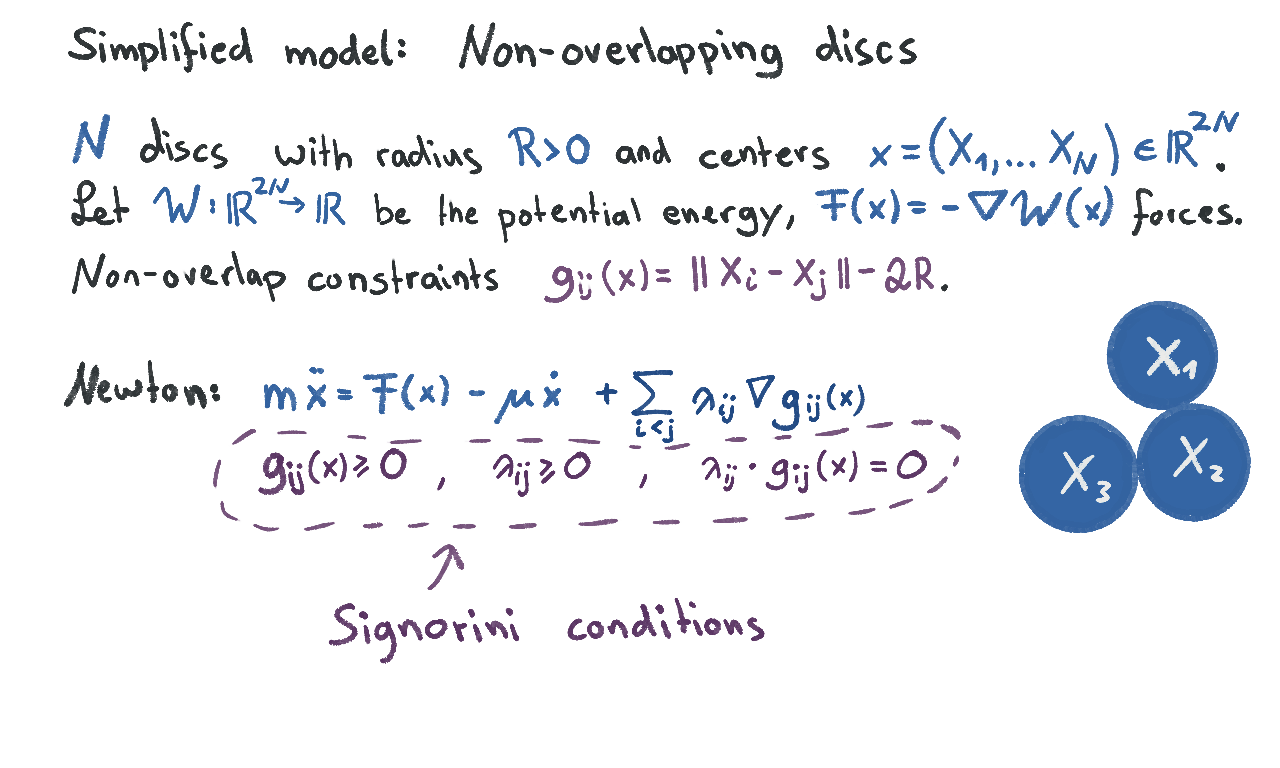 Simplified model: Non-overlapping discs
N discs with radius R>0 and centers x = (X₁,... X_N) ∈ ℝ²ᴺ.
Let W : ℝ²ᴺ → ℝ be the potential energy, F(x) = - ∇W(x) forces.
Non-overlap constraints g_ij(x) = ‖X_i - X_j‖ - 2R.
Newton: mẍ = F(x) - μẋ + ∑_{i<j} λ_ij ∇g_ij(x)
g_ij(x) ⩾ 0 , λ_ij ⩾ 0 , λ_ij · g_ij(x) = 0
Signorini conditions
X₁
X₂
X₃